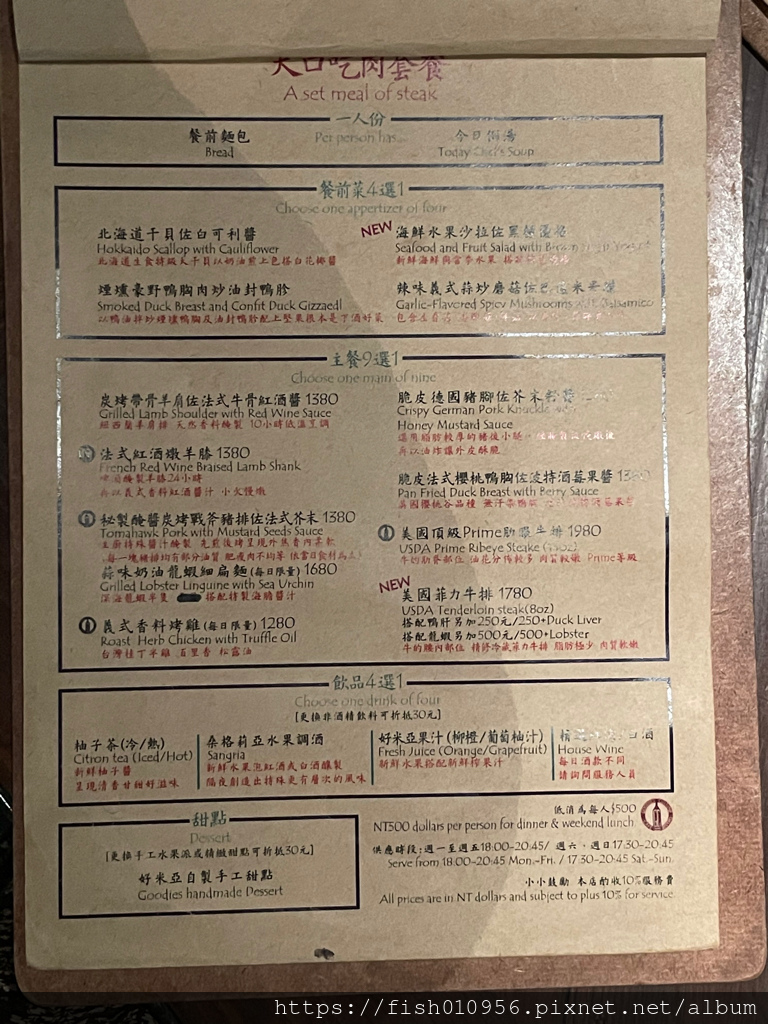 大口吃肉套餐
A set meal of steak
一人份
Per person has...
餐前麵包
Bread
今日例湯
Today Chef's Soup
餐前菜4選1
Choose one appertizer of four
北海道干貝佐白可利醬
Hokkaido Scallop with Cauliflower
北海道生食特級大干貝以奶油煎上色搭白花椰醬
NEW
海鮮水果沙拉佐
Seafood and Fruit Salad with
新鮮海鮮與當季水果
煙燻豪野鴨胸肉炒油封鴨胗
Smoked Duck Breast and Confit Duck Gizzaedl
以鴨油拌炒煙燻鴨胸及油封鴨胗配上堅果根本是下酒好菜
辣味義式蒜炒蘑菇佐巴
Garlic-Flavored Spicy Mushrooms with Balsamico
主餐9選1
Choose one main of nine
炭烤帶骨羊肩佐法式牛骨紅酒醬 1380
Grilled Lamb Shoulder with Red Wine Sauce
紐西蘭羊肩排 天然香料醃製 10小時低溫烹調
法式紅酒燉羊膝 1380
French Red Wine Braised Lamb Shank
醃製羊膝24小時
再以義式香料紅酒醬汁 小火慢燉
秘製醃醬炭烤戰斧豬排佐法式芥末 1380
Tomahawk Pork with Mustard Seeds Sauce
主廚特殊醬汁醃製 先煎後烤呈現外焦香肉柔軟
每一塊豬排均有部分油質 肥瘦肉不均等
蒜味奶油龍蝦細扁麵(每日限量) 1680
Grilled Lobster Linguine with Sea Urchin
深海龍蝦半隻 搭配特製海膽醬汁
義式香料烤雞(每日限量) 1280
Roast Herb Chicken with Truffle Oil
台灣桂丁半雞 百里香 松露油
脆皮德國豬腳佐芥末
Crispy German Pork Knuckle with
Honey Mustard Sauce
選用脂肪較厚的豬後小腿
再以油炸讓外皮酥脆
脆皮法式櫻桃鴨胸佐波特酒莓果醬
Pan Fried Duck Breast with Berry Sauce
英國櫻桃谷品種
美國頂級Prime肋眼牛排 1980
USDA Prime Ribeye Steake
牛的肋脊部位 油花分佈較多 肉質較嫩 Prime等級
NEW
美國菲力牛排 1780
USDA Tenderloin steak(8oz)
搭配鴨肝另加250元/250+Duck Liver
搭配龍蝦另加500元/500+Lobster
牛的腰內部位 精修冷藏菲力牛排 脂肪極少 肉質軟嫩
飲品4選1
Choose one drink of four
[更換非酒精飲料可折抵30元]
柚子茶(冷/熱)
Citron tea (Iced/Hot)
新鮮柚子醬
呈現清香甘甜好滋味
桑格莉亞水果調酒
Sangria
新鮮水果泡紅酒或白酒釀製
隔夜創造出特殊更有層次的風味
好米亞果汁(柳橙/葡萄柚汁)
Fresh Juice (Orange/Grapefruit)
新鮮水果搭配新鮮榨果汁
白酒
House Wine
每日酒款不同
請詢問服務人員
甜點
Dessert
[更換手工水果派或精緻甜點可折抵30元]
好米亞自製手工甜點
Goodies handmade Dessert
低消為每人$500
NT500 dollars per person for dinner & weekend lunch
供應時段:週一至週五18:00-20:45/ 週六、週日17:30-20:45
Serve from 18:00-20:45 Mon.-Fri. / 17:30-20:45 Sat.-Sun.
小小鼓勵 本店酌收10%服務費
All prices are in NT dollars and subject to plus 10% for service
https://fish010956.pixnet.net/album